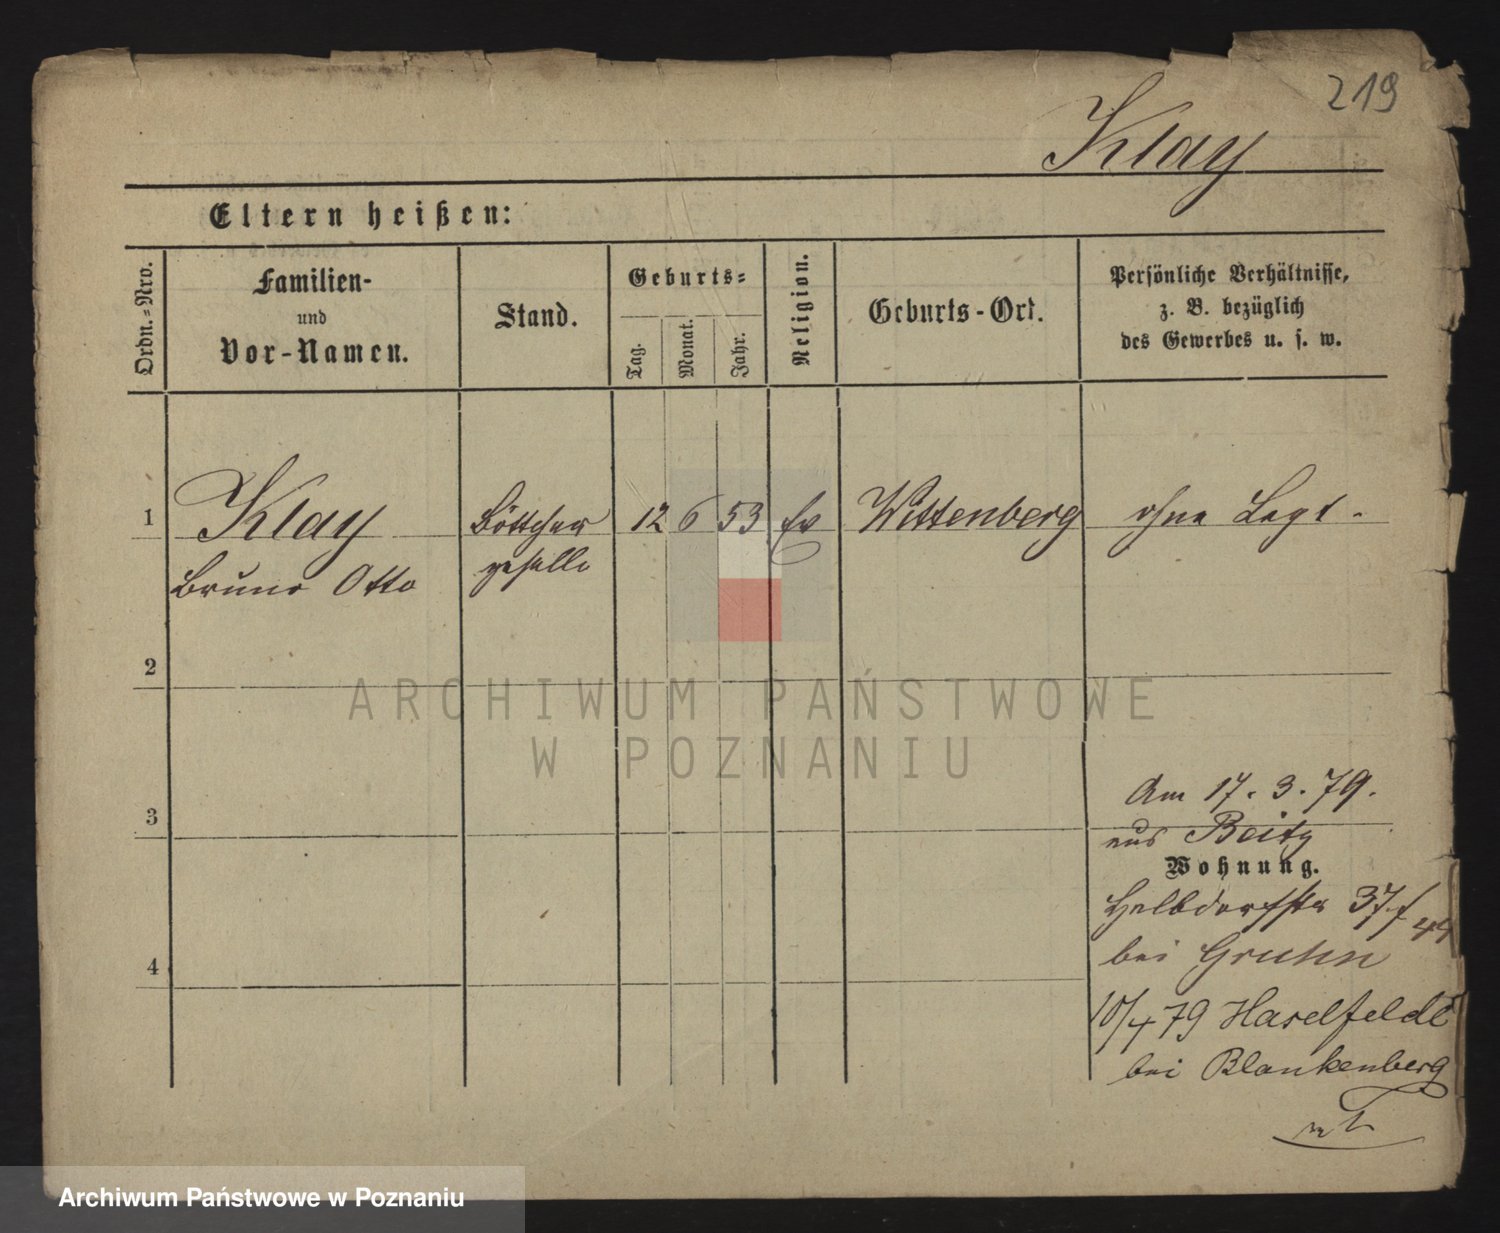 219
Klay
Eltern heißen:
Ordn.-Nro.
Familien-
und
Vor-Namen.
Stand.
Geburts-
Tag.
Monat.
Jahr.
Religion.
Geburts-Ort.
Persönliche Verhältnisse,
z. B. bezüglich
des Gewerbes u. s. w.
1 Klay Böttcher 12 6 53 Ev Wittenberg ohne Legt.
Bruno Otto geselle
2
ARCHIWUM PAŃSTWOWE
W POZNANIU
3
Am 17.3.79.
aus
Wohnung.
37
bei Gruhn
4
10/4 79 Haselfelde
bei Blankenberg
Archiwum Państwowe w Poznaniu